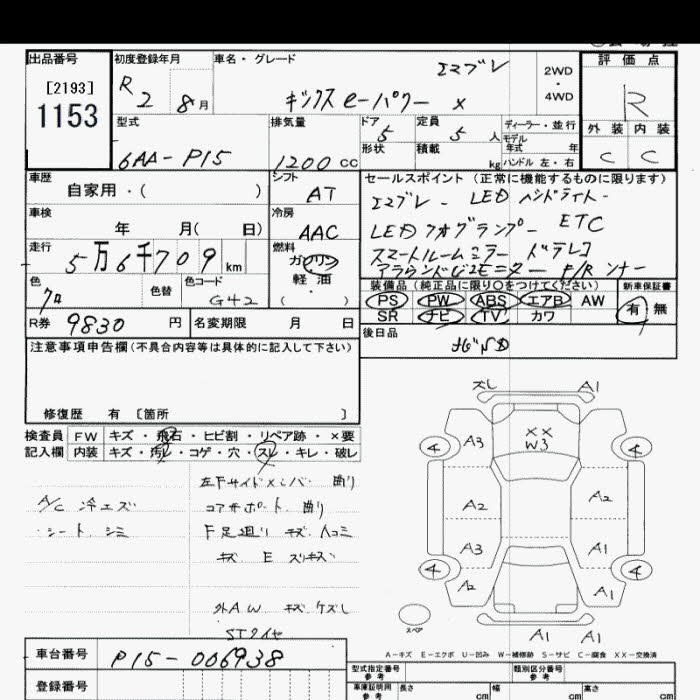 出品番号
[2193]
1153
初度登録年月
R 2 8 月
車名・グレード
エマブレ
キックス e-パワー X
2WD
・
4WD
評価点
R
外装 内装
C C
型式
6AA-P15
排気量
1200 CC
ドア
5
定員
5 人
形状
積載
kg
ディーラー・並行
モデル
年式 年
ハンドル 左・右
車歴
自家用・( )
シフト
AT
車検
年 月( 日)
冷房
AAC
走行
5万6千709 km
燃料
ガソリン
軽油
( ・ )
色
クロ
色替
色コード
G42
R券 9830 円
名変期限 月 日
セールスポイント(正常に機能するものに限ります)
エマブレ - LED ヘッドライト -
LED フォグランプ - ETC
スマートルームミラー ドラレコ
アラウンドビューモニター F/R ソナー
装備品(純正品に限り○をつけてください)
PS PW ABS エアB AW
SR ナビ TV カワ
新車保証書
有 無
後日品
ナビSD
注意事項申告欄(不具合内容等は具体的に記入して下さい)
修復歴 有 [箇所 ]
検査員
記入欄
FW キズ・飛石・ヒビ割・リペア跡・×要
内装 キズ・汚れ・コゲ・穴・スレ・キレ・破レ
A/C 冷エズ
・シート シミ
左Fサイドメンバー 曲り
コアサポート 曲り
F足廻り キズ ヘコミ
キズ E スリキズ
外AW キズ ケズレ
STタイヤ
ズレ A1
XX
W3
A3 A2 A3 A2
A2 A1 A1
4 4 4 4
スペア
A1 A1
A-キズ E-エクボ U-凹み W-補修跡 S-サビ C-腐食 XX-交換済
車台番号
P15-006938
登録番号
型式指定番号
参考
類別区分番号
参考
車庫証明用
参考
長さ cm
幅 cm
高さ cm